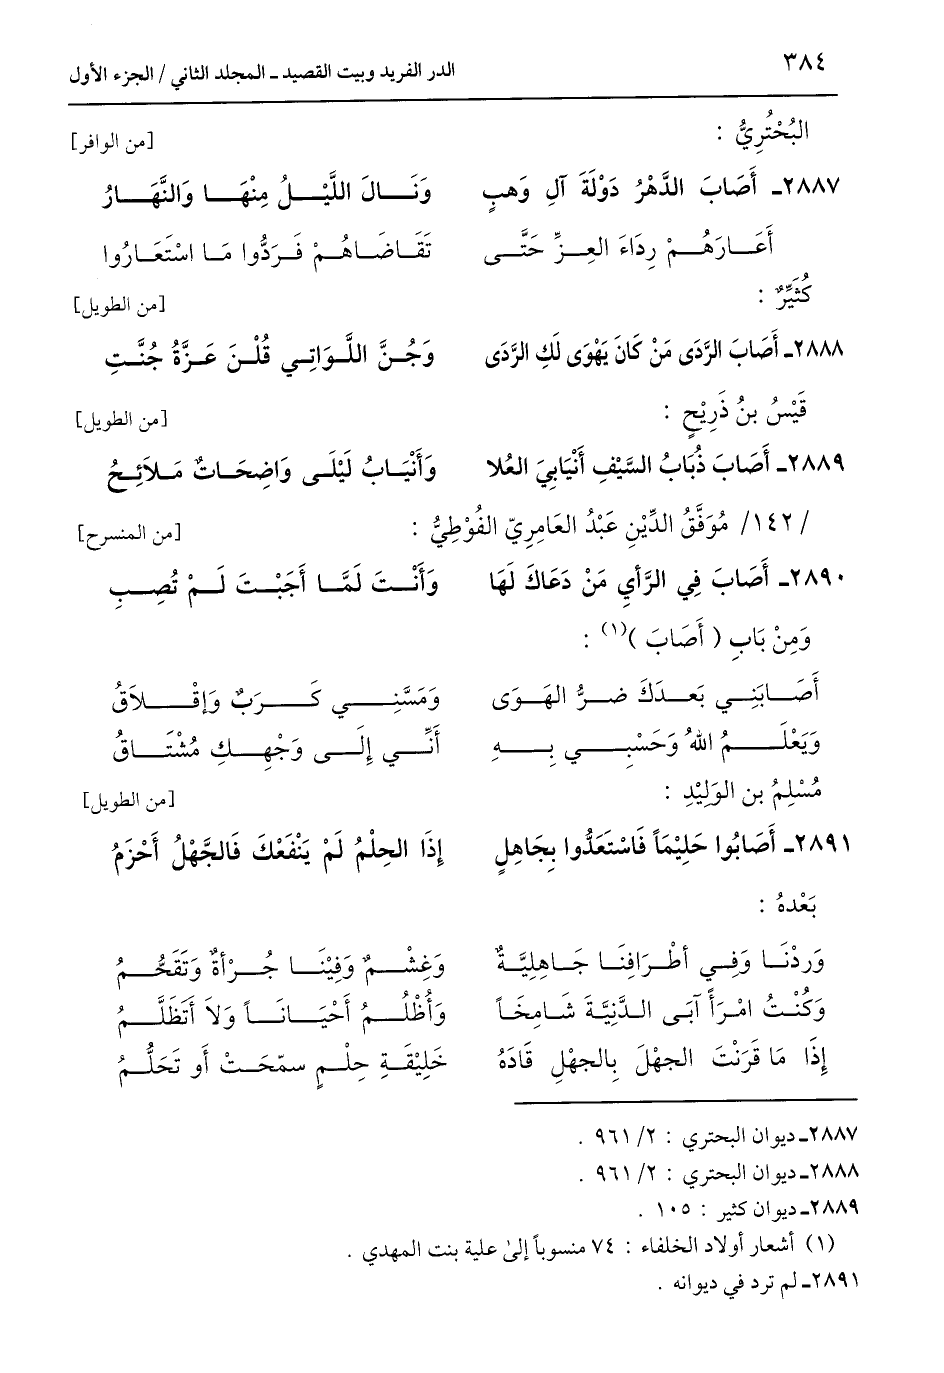 ٣٨٤ الدر الفريد وبيت القصيد ـ المجلد الثاني / الجزء الأول
البُحْتُرِيُّ : [من الوافر]
٢٨٨٧ـ أَصَابَ الدَّهْرُ دَوْلَةَ آلِ وَهبٍ وَنَالَ اللَّيْلُ مِنْهَا وَالنَّهَارُ
أَعَارَهُمْ رِدَاءَ العِزِّ حَتَّى تَقَاضَاهُمْ فَرَدُّوا مَا اسْتَعَارُوا
كُثَيِّرٌ : [من الطويل]
٢٨٨٨ـ أَصَابَ الرَّدَى مَنْ كَانَ يَهْوَى لَكِ الرَّدَى وَجُنَّ اللَّوَاتِي قُلْنَ عَزَّةُ جُنَّتِ
قَيْسُ بنُ ذَرِيْحٍ : [من الطويل]
٢٨٨٩ـ أَصَابَ ذُبَابُ السَّيْفِ أَنْيَابِيَ العُلا وَأَنْيَابُ لَيْلَى وَاضِحَاتٌ مَلَائِحُ
/ ١٤٢/ مُوَفَّقُ الدِّيْنِ عَبْدُ العَامِرِيّ الفُوْطِيُّ : [من المنسرح]
٢٨٩٠ـ أَصَابَ فِي الرَّأيِ مَنْ دَعَاكَ لَهَا وَأَنْتَ لَمَّا أَجَبْتَ لَمْ تُصِبِ
وَمِنْ بَابِ ( أَصَابَ )(١) :
أَصَابَنِي بَعدَكَ ضرُّ الهَوَى وَمَسَّنِي كَرَبٌ وَإقْلاَقُ
وَيَعْلَمُ اللهُ وَحَسْبِي بِهِ أَنِّي إِلَى وَجْهِكِ مُشْتَاقُ
مُسْلِمُ بن الوَلِيْدِ : [من الطويل]
٢٨٩١ـ أَصَابُوا حَلِيْمَاً فَاسْتَعَدُّوا بِجَاهِلٍ إِذَا الحِلْمُ لَمْ يَنْفَعْكَ فَالجَهْلُ أَحْزَمُ
بَعْدهُ :
وَردْنَا وَفِي أطْرَافِنَا جَاهِلِيَّةٌ وَغِشْمٌ وَفِيْنَا جُرْأةٌ وَتَقَحُّمُ
وَكُنْتُ امْرَأً آبَى الدَّنِيَّةَ شَامِخَاً وَأُظْلُمُ أَحْيَانَاً وَلاَ أَتَظَلَّمُ
إِذَا مَا قَرَنْتَ الجهْلَ بِالجهْلِ قَادَهُ خَلِيْقَةِ حِلْمٍ سمّحَتْ أو تَحَلُّمُ
٢٨٨٧ـ ديوان البحتري : ٢/ ٩٦١ .
٢٨٨٨ـ ديوان البحتري : ٢/ ٩٦١ .
٢٨٨٩ـ ديوان كثير : ١٠٥ .
(١) أشعار أولاد الخلفاء : ٧٤ منسوباً إلى علية بنت المهدي .
٢٨٩١ـ لم ترد في ديوانه .